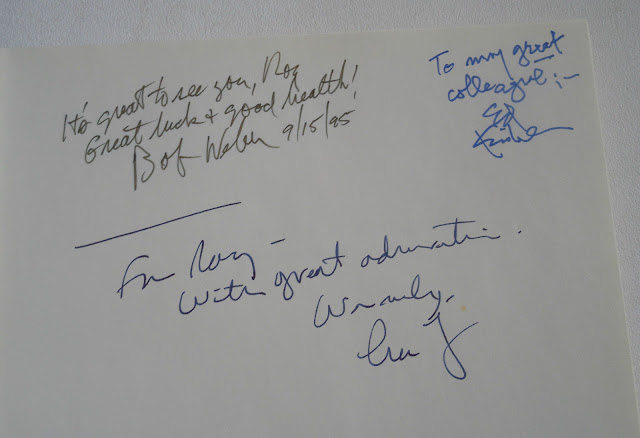 It's great to see you, Roy
Great luck & good health!
Bob Weber 9/15/95
To my great
colleague :-
Ed
For Roy -
With great admiration.
Warmly,